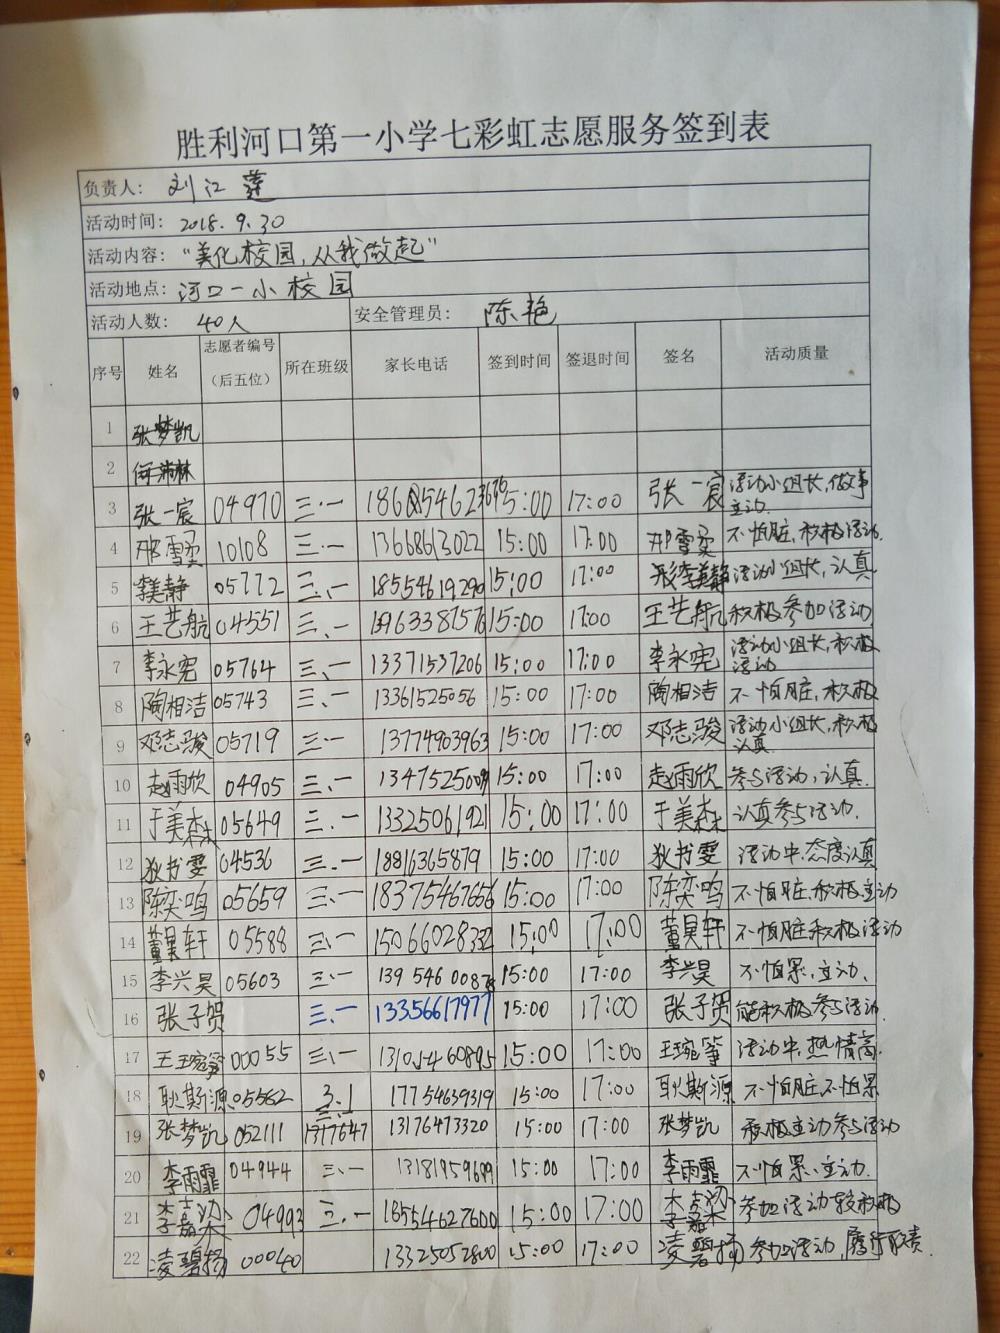 胜利河口第一小学七彩虹志愿服务签到表
负责人： 刘江莲
活动时间： 2018.9.30
活动内容： “美化校园，从我做起”
活动地点： 河口一小校园
活动人数： 40人 安全管理员： 陈艳
序号 姓名 志愿者编号（后五位） 所在班级 家长电话 签到时间 签退时间 签名 活动质量
1 张梦凯
2
3 张一宸 04970 三.一 15:00 17:00 张一宸 活动小组长，做事主动.
4 邢雪雯 10108 三.一 13668613022 15:00 17:00 邢雪雯 不怕脏，积极活动.
5 李美静 05772 三.一 18554619290 15:00 17:00 李美静 活动小组长，认真
6 王艺航 04551 三、一 15:00 17:00 王艺航 积极参加活动
7 李永宪 05764 三、一 13371537206 15:00 17:00 李永宪 活动小组长，积极活动
8 陶相洁 05743 三、一 13361525056 15:00 17:00 陶相洁 不怕脏，积极
9 邓志骏 05719 三.一 13774903963 15:00 17:00 邓志骏 活动小组长，积极认真
10 赵雨欣 04905 三、一 15:00 17:00 赵雨欣 参与活动，认真
11 于美森 05649 三.一 13325061921 15:00 17:00 于美森 认真参与活动.
12 狄书雯 04536 三.一 18816365879 15:00 17:00 狄书雯 活动中，态度认真
13 陈奕鸣 05659 三.一 18375467656 15:00 17:00 陈奕鸣 不怕脏，积极主动
14 董昊轩 05588 三.一 15066028332 15:00 17:00 董昊轩 不怕脏积极活动
15 李兴昊 05603 三.一 15:00 17:00 李兴昊 不怕累，主动、
16 张子贺 三.一 13356617977 15:00 17:00 张子贺 能积极参与活动
17 王琬筝 00055 三.一 15:00 17:00 王琬筝 活动中，热情高.
18 耿斯源 05562 3.1 17754639319 15:00 17:00 耿斯源 不怕脏不怕累
19 张梦凯 052111 1317647 13176473320 15:00 17:00 张梦凯 积极主动参与活动
20 李雨霏 04944 三.一 13181959699 15:00 17:00 李雨霏 不怕累，主动.
21 04993 三.一 18554627600 15:00 17:00 参加活动较积极
22 凌碧扬 00040 13325052800 15:00 17:00 凌碧扬 参加活动，履行职责.